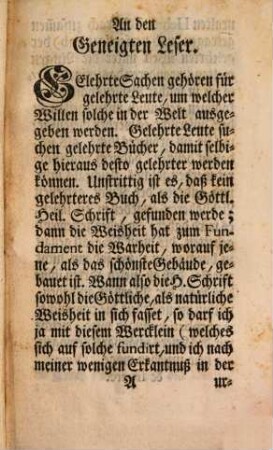 An den
Geneigten Leser.
GElehrte Sachen gehören für
gelehrte Leute, um welcher
Willen solche in der Welt ausge-
geben werden. Gelehrte Leute su-
chen gelehrte Bücher, damit selbi-
ge hieraus desto gelehrter werden
können. Unstrittig ist es, daß kein
gelehrteres Buch, als die Göttl.
Heil. Schrift, gefunden werde;
dann die Weisheit hat zum Fun-
dament die Warheit, worauf je-
ne, als das schönste Gebäude, ge-
bauet ist. Wann also die H. Schrift
sowohl die Göttliche, als natürliche
Weisheit in sich fasset, so darf ich
ja mit diesem Wercklein (welches
sich auf solche fundirt, und ich nach
meiner wenigen Erkantnuß in der
A ur-